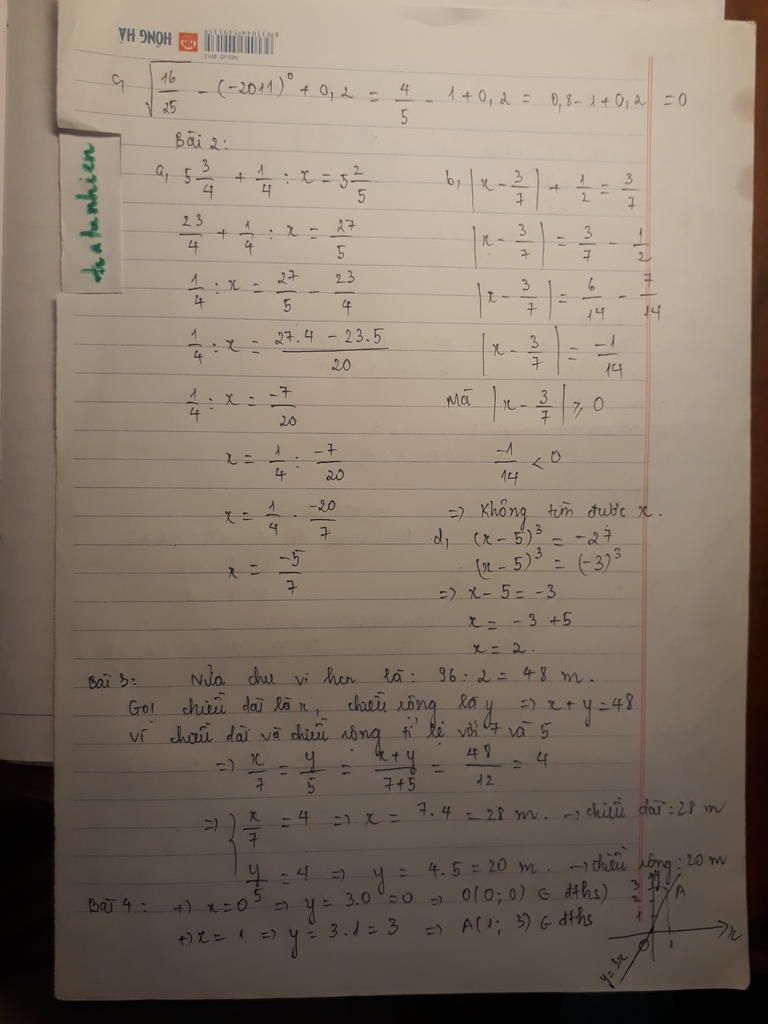 HỒNG HÀ
c, √(16/25) - (-2011)⁰ + 0,2 = 4/5 - 1+0,2 = 0,8-1+0,2 = 0
Bài 2:
a, 5 3/4 + 1/4 : x = 5 2/5
23/4 + 1/4 : x = 27/5
1/4 : x = 27/5 - 23/4
1/4 : x = (27.4 - 23.5)/20
1/4 : x = -7/20
x = 1/4 : -7/20
x = 1/4 . -20/7
x = -5/7
b, |x - 3/7| + 1/2 = 3/7
|x - 3/7| = 3/7 - 1/2
|x - 3/7| = 6/14 - 7/14
|x - 3/7| = -1/14
Mà |x - 3/7| ≥ 0
-1/14 < 0
=> Không tìm được x.
d, (x-5)³ = -27
(x-5)³ = (-3)³
=> x-5 = -3
x = -3 +5
x = 2.
Bài 3: Nửa chu vi hcn là: 96 : 2 = 48 m.
Gọi chiều dài là x, chiều rộng là y => x + y = 48
Vì chiều dài và chiều rộng tỉ lệ với 7 và 5
=> x/7 = y/5 = (x+y)/(7+5) = 48/12 = 4
=> { x/7 = 4 => x = 7.4 = 28 m. → chiều dài : 28 m
y/5 = 4 => y = 4.5 = 20 m. → chiều rộng : 20 m
Bài 4 : +) x=0 => y = 3.0 = 0 => O(0; 0) ∈ đths)
+) x = 1 => y = 3.1 = 3 => A(1; 3) ∈ đths
y
3
2
1
A
O
1
x
y=3x